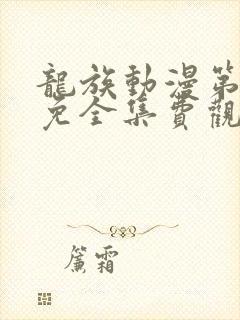 龍族動漫第
免全集費觀
簾霜